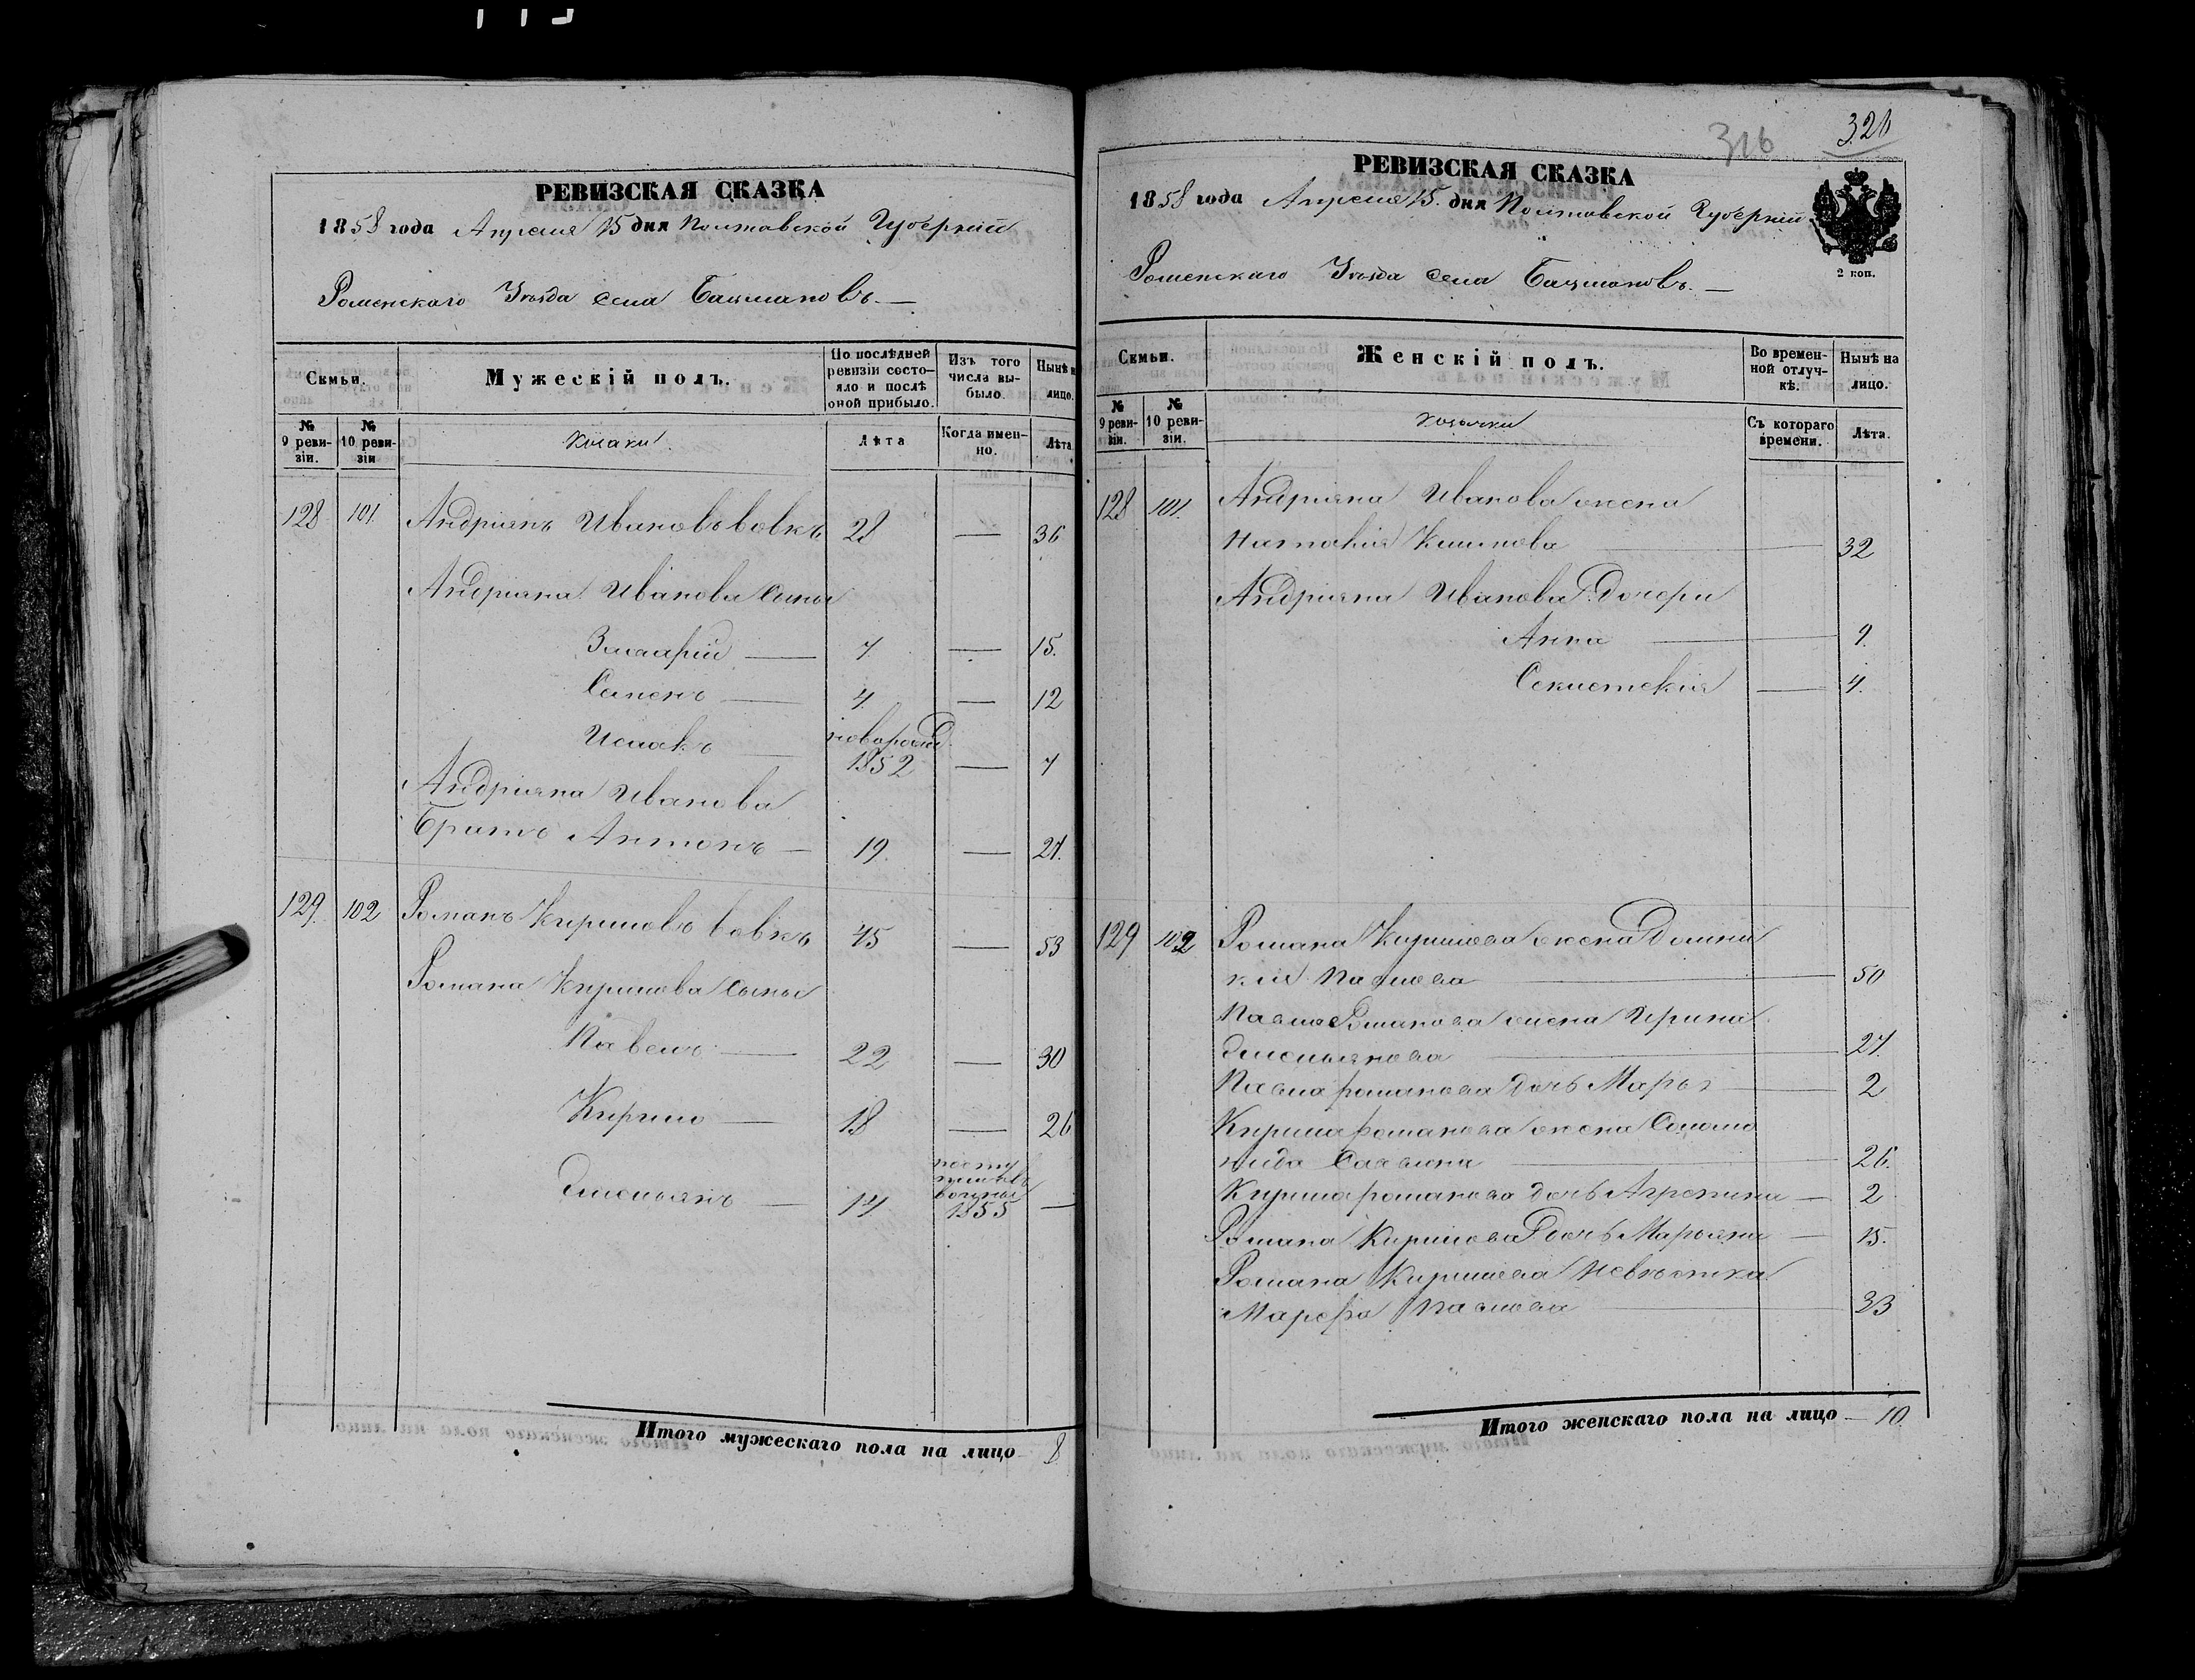 РЕВИЗСКАЯ СКАЗКА
1858 года Апреля 15 дня Полтавской Губерніи
Роменскаго Уезда села Бацмановъ.
Семьи.
Мужескій полъ.
По послѣдней ревизіи состояло и послѣ оной прибыло.
Изъ того числа выбыло.
Нынѣ на лицо.
№ 9 ревизіи.
№ 10 ревизіи
Козаки
Лѣта
Когда именно.
Лѣта
128 101 Андріянъ Ивановъ вовкъ 28 — 36
Андріяна Иванова Сыны
— 7 — 15.
Семенъ — 4 — 12
Исаакъ — новорожд 1852 — 7
Андріяна Иванова
братъ Антонъ — 19. — 27.
129. 102 Романъ Кириловъ вовкъ 45 — 53
Романа Кирилова Сыны
Павелъ — 22 — 30
Кирило — 18 — 26
Эмельянъ — 14 1855 —
Итого мужескаго пола на лицо 8
316
320
РЕВИЗСКАЯ СКАЗКА
1858 года Апреля 15. дня Полтавской Губерніи
Роменскаго Уезда села Бацмановъ.
2 коп.
Семьи.
Женскій полъ.
Во временной отлучкѣ.
Нынѣ на лицо.
№ 9 ревизіи.
№ 10 ревизіи.
Козачки
Съ котораго времени.
Лѣта.
128 101. Андріяна Иванова жена
Наталія Климова — 32
Андріяна Иванова Дочери
Анна — 9.
— 4.
129 102 Романа Кирилова жена Домни
кія Павлова — 50
Павла Романова жена Ирина
Эмельянова — 27.
Павла романова дочь Марья — 2
Кирила романова жена Соломо
нида Савелина — 26.
Кирила романова дочь Агрепина — 2
Романа Кирилова дочь Марьяна — 15.
Романа Кирилова Невѣстка
Марфа Павлова — 33
Итого женскаго пола на лицо — 10